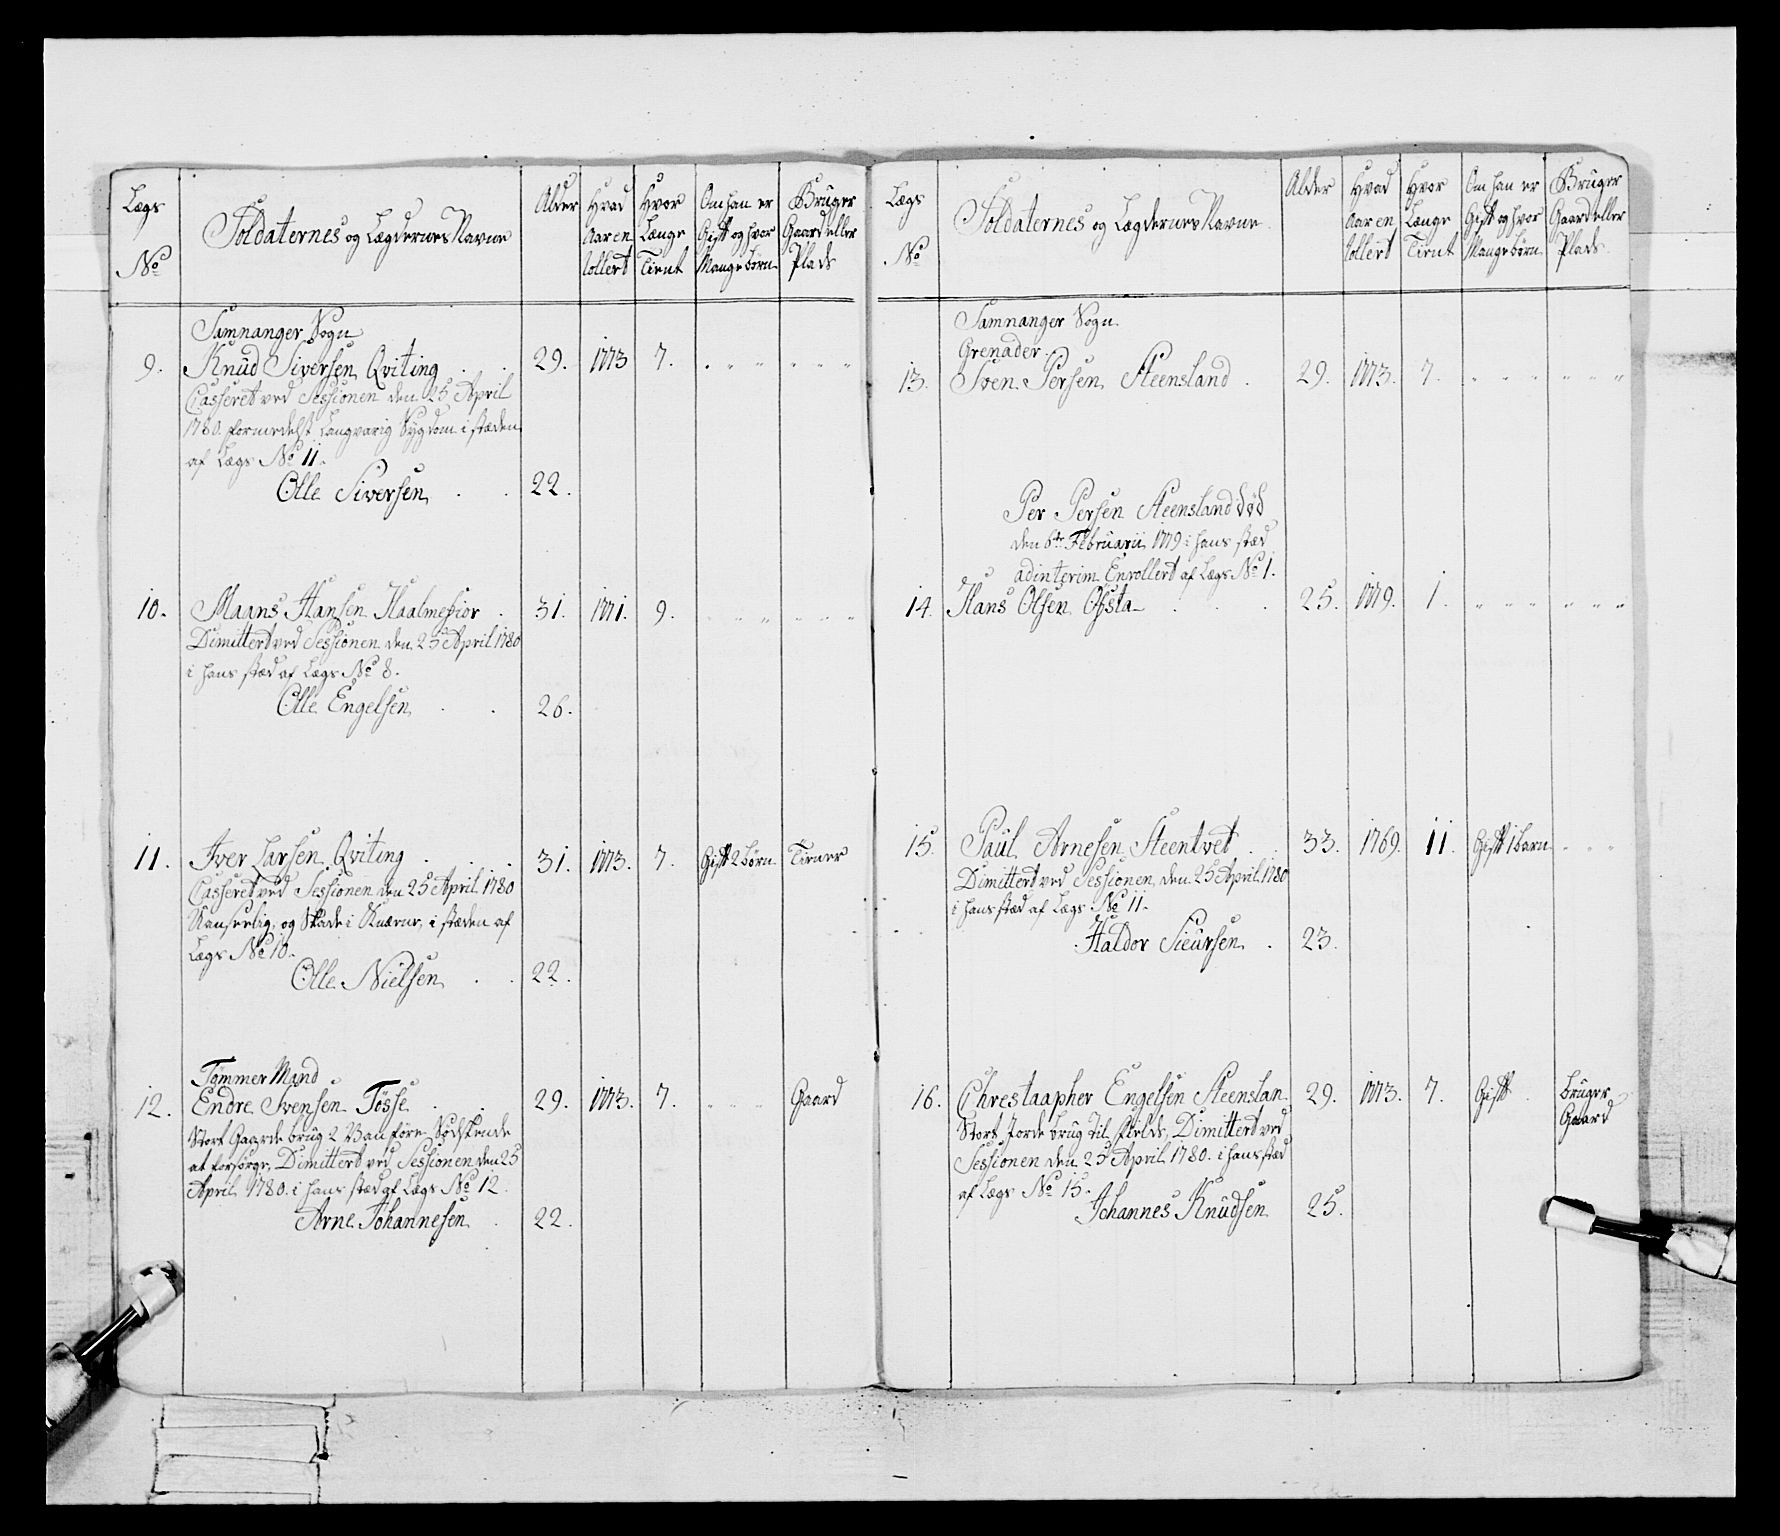 Lægs
No
Soldaternes og Lægdernes Navne
Alder
Hvad
Aar en
rollert
Hvor
Længe
Tient
Om han er
Gift og hvor
Mange børn
Bruger
Gaard eller
Plads
Samnanger Sogn
9. Knud Siversen Qviting . . 29. 1773 7. . " " " " "
Casseret ved Sessionen den 25 April
1780 formedelst Langvarig Sygdom i stæden
af Lægs No 11.
Olle Siversen . . 22.
10. Maans Hansen Haalmefior . 31. 1771. 9. " " " " " "
Dimittert ved Sessionen den 25 April 1780
i hans stæd af Lægs No 8.
Olle Engelsen . . 26.
11. Iver Larsen Qviting . . . 31. 1773. 7. Gift 2 børn Tiener
Casseret ved Sessionen den 25 April 1780
og Skade i Knæerne, i stæden af
Lægs No 10.
Olle Nielsen . . 22.
Tømmer Mand
12. Endre Svensen Tøsse . . 29. 1773. 7. " " " Gaard
Stort Gaarde brug 2 Vanføre Sødskende
at forsørge, Dimittert ved Sessionen den 25
April 1780. i hans stæd af Lægs No 12.
Arne Johannesen . 22.
Lægs
No
Soldaternes og Lægdernes Navne
Alder
Hvad
Aar en
rollert
Hvor
Længe
Tient
Om han er
Gift og hvor
Mange børn
Bruger
Gaard eller
Plads
Samnanger Sogn.
Grenader.
13. Sven Persen Steensland . 29. 1773. 7. " " " " " "
Per Persen Steensland død
den 6te Februarii 1779 i hans stæd
adinterim Enrollert af Lægs No 1.
14. Hans Olsen Ofsta . . . 25. 1779. 1. " " " " " "
15. Paul Arnesen Steentvet . . 33. 1769. 11. Gift 1 barn " " "
Dimittert ved Sessionen den 25 April 1780
i hans stæd af Lægs No 11.
Haldor Sieursen . 23.
16. Chrestaapher Engelsen Steenslan 29. 1773. 7. Gift . bruger
Gaard
Stort Jorde brug til Fields, Dimittert ved
Sessionen den 25 April 1780. i hans stæd
af Lægs No 15.
Johannes Knudsen 25.